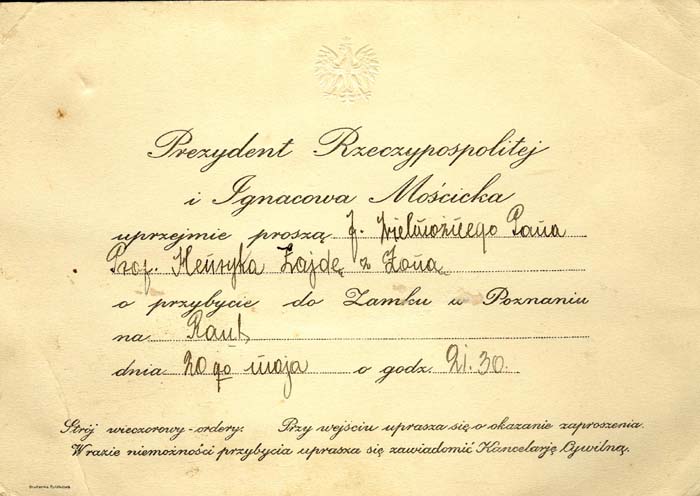 Prezydent Rzeczypospolitej
i Ignacowa Mościcka
uprzejmie proszą J. Wielmożnego Pana
Prof. Henryka Zajdę z Żoną
o przybycie do Zamku w Poznaniu
na Raut
dnia 20go maja o godz. 21.30.
Strój wieczorowy - ordery. Przy wejściu uprasza się o okazanie zaproszenia.
W razie niemożności przybycia uprasza się zawiadomić Kancelarję Cywilną.